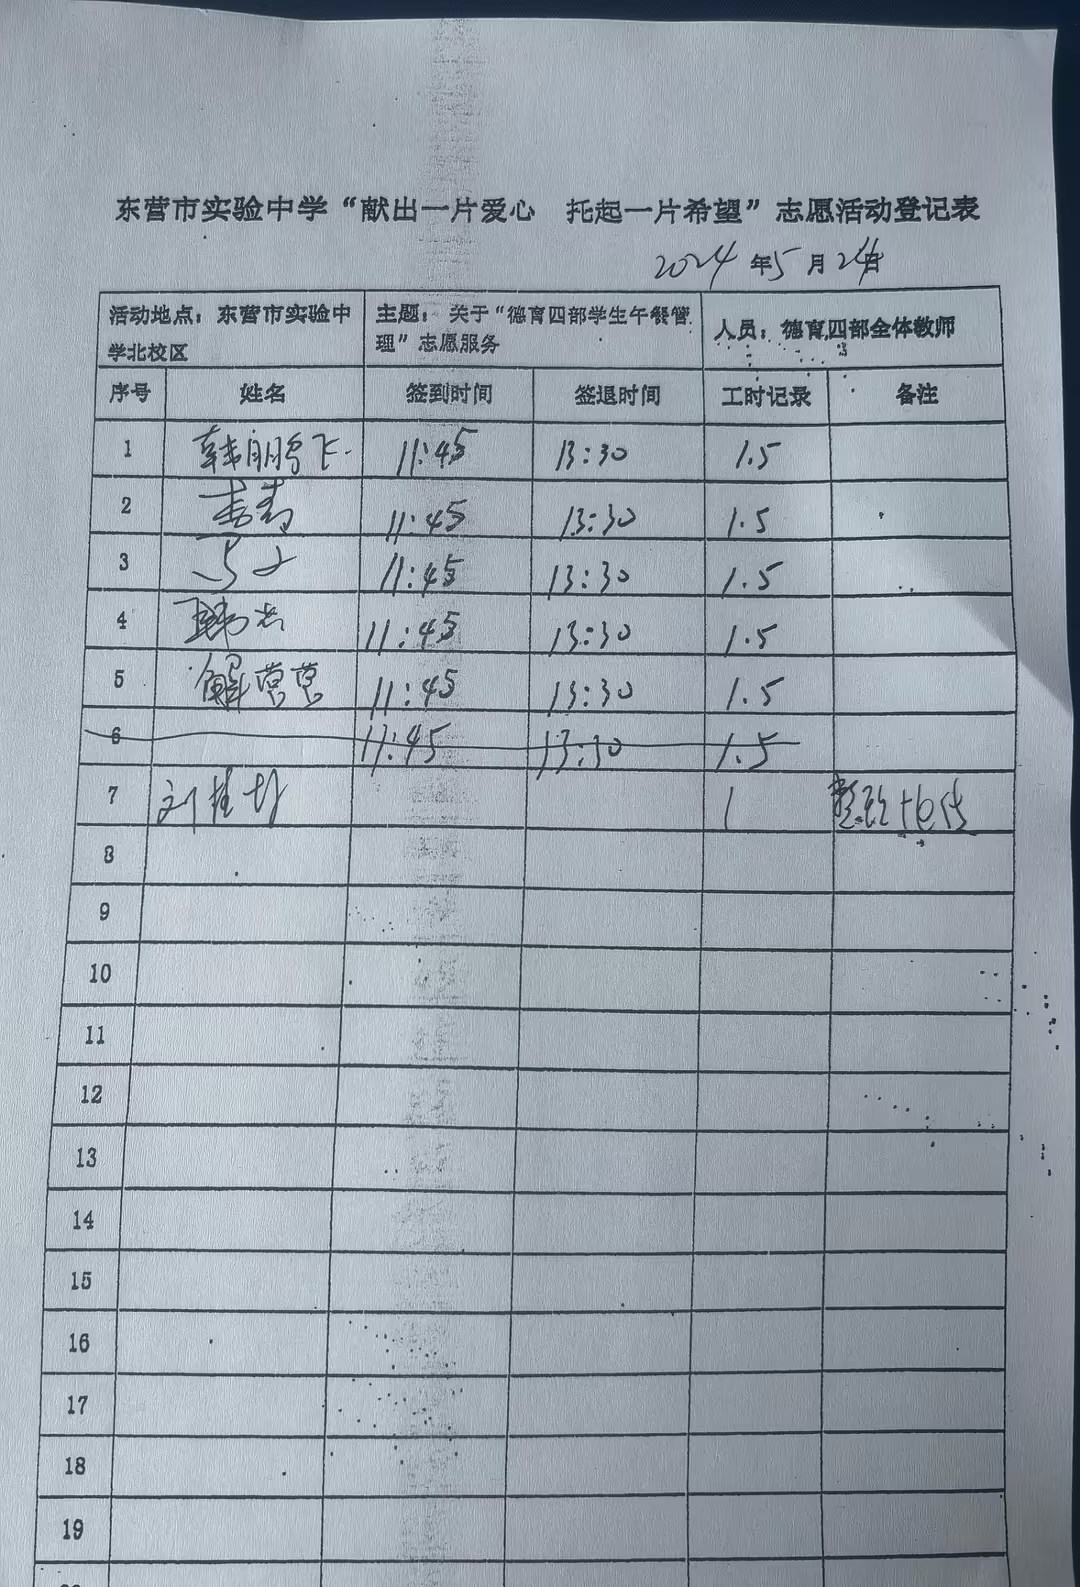 东营市实验中学“献出一片爱心 托起一片希望”志愿活动登记表
2024年5月24日
活动地点：东营市实验中学北校区 主题：关于“德育四部学生午餐管理”志愿服务 人员：德育四部全体教师
序号 姓名 签到时间 签退时间 工时记录 备注
1 韩鹏飞 11:45 13:30 1.5
2 11:45 13:30 1.5
3 11:45 13:30 1.5
4 11:45 13:30 1.5
5 解营营 11:45 13:30 1.5
6 11:45 13:30 1.5
7 刘 1
8
9
10
11
12
13
14
15
16
17
18
19